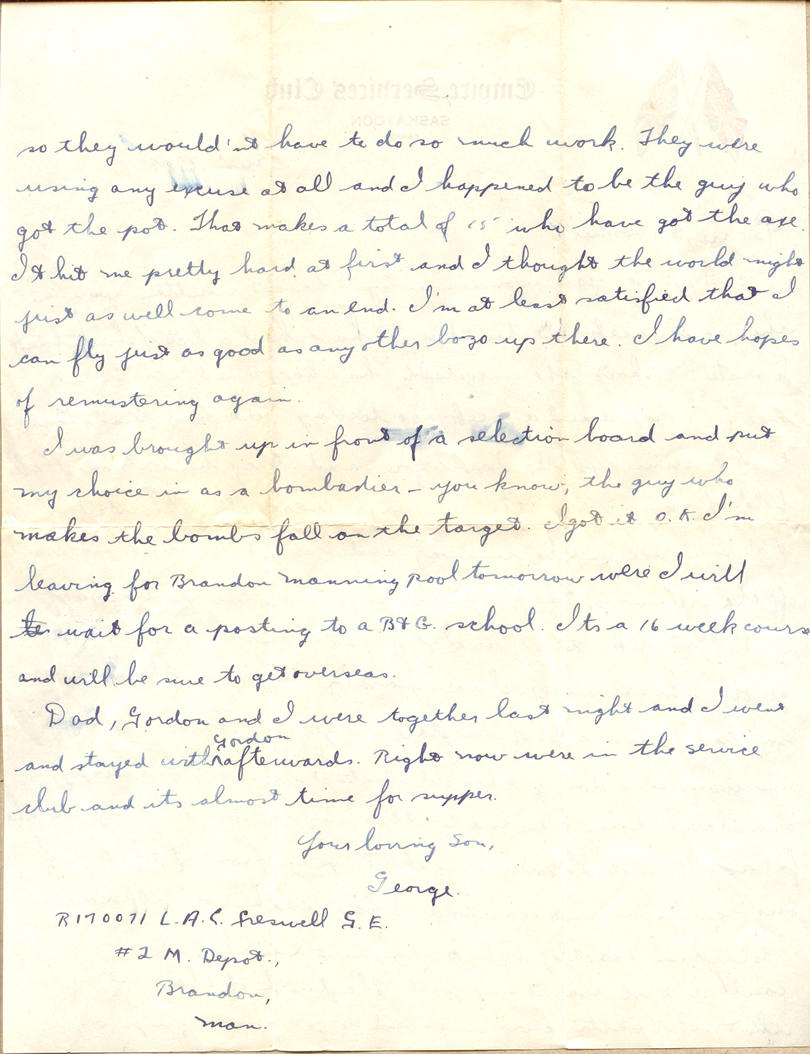 Empire Services Club
SASKATOON
so they would'nt have to do so much work. They were
using any excuse at all and I happened to be the guy who
got the pot. That makes a total of 15 who have got the axe.
It hit me pretty hard at first and I thought the world might
just as well come to an end. I'm at least satisfied that I
can fly just as good as any other bozo up there. I have hopes
of remustering again.
I was brought up in front of a selection board and put
my choice in as a bombadier - you know, the guy who
makes the bombs fall on the target. I got it O.K. I'm
leaving for Brandon manning pool tomorrow were I will
wait for a posting to a B&G. school. Its a 16 week course
and will be sure to get overseas.
Dad, Gordon and I were together last night and I went
and stayed with Gordon afterwards. Right now were in the service
club and its almost time for supper.
Your loving Son,
George.
R170071 L.A.C. Creswell G.E.
#2 M. Depot.,
Brandon,
Man.